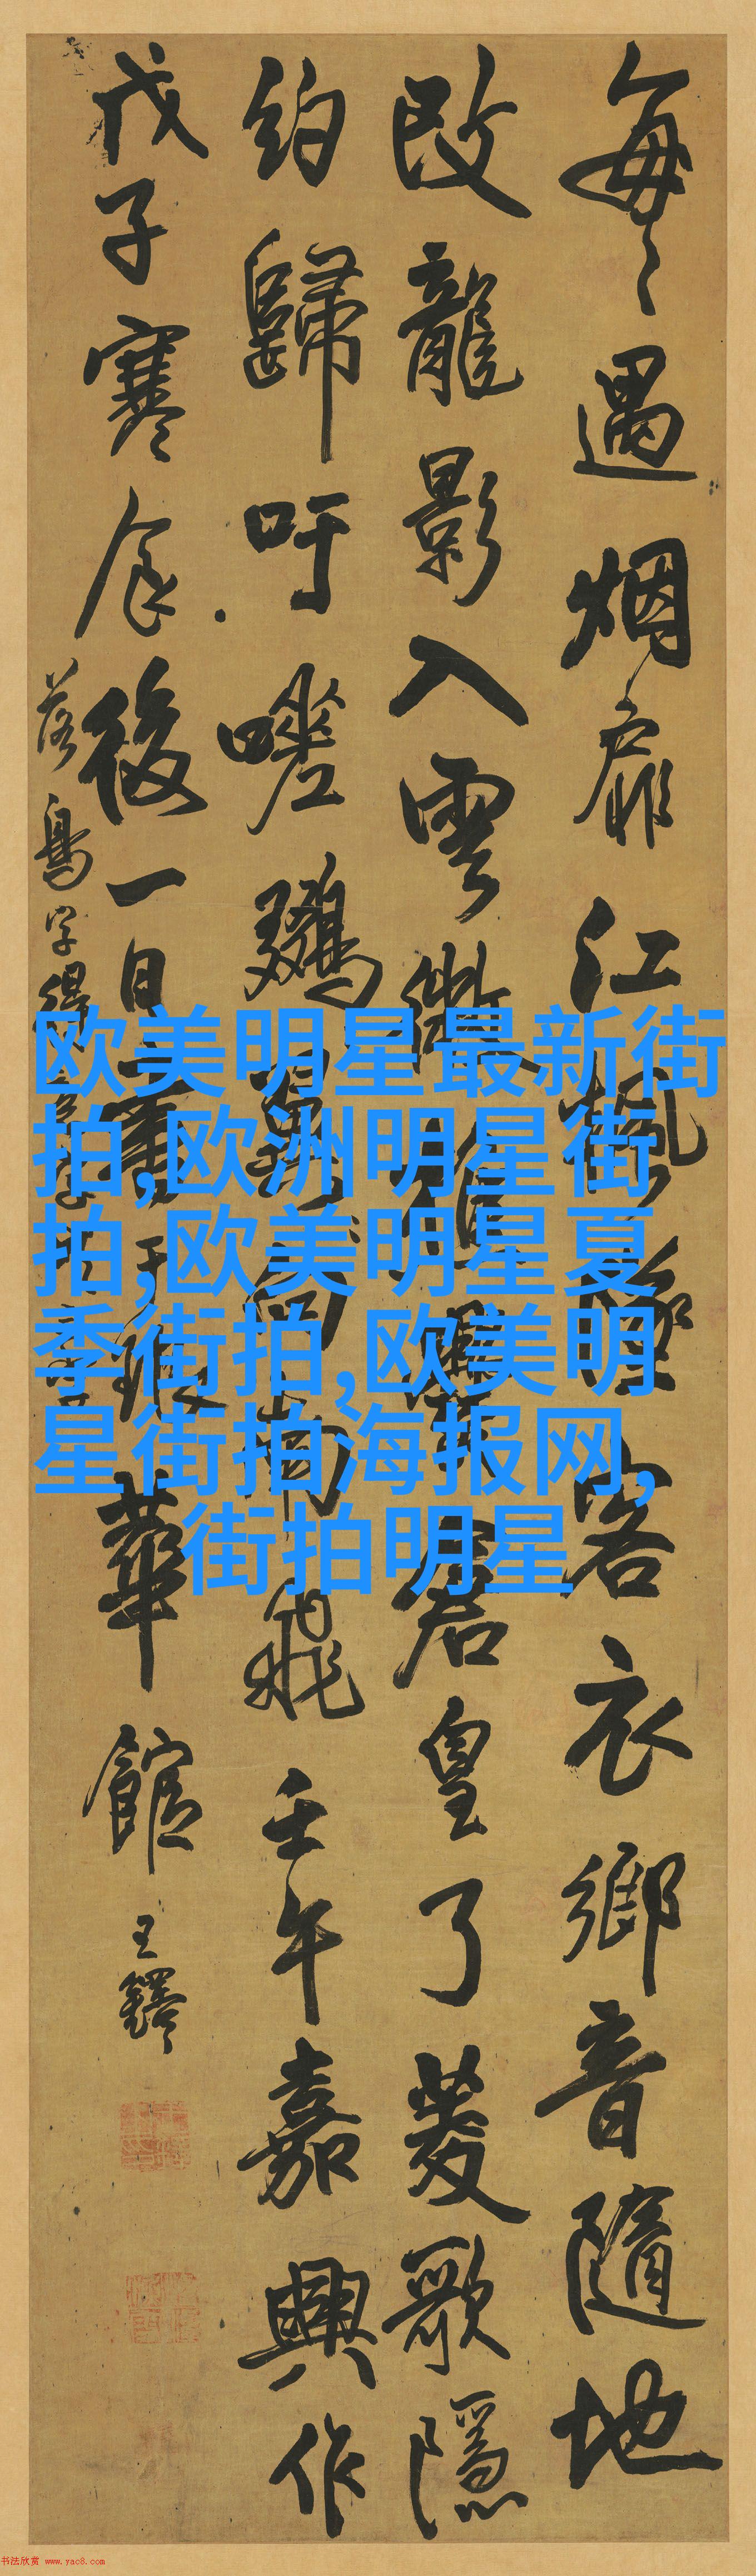 每々遇烟扉江楓客衣鄉音隨地
改龍影入雲皇了菱歌隱
約歸吁嗟南飛壬午嘉興作
戊子寒食後一日于琅華館
王鐸
落鳥字
欧美明星最新街
拍,欧洲明星街
拍,欧美明星夏
季街拍,欧美明
星街拍海报网,
街拍明星
书法欣赏 www.yac8.com